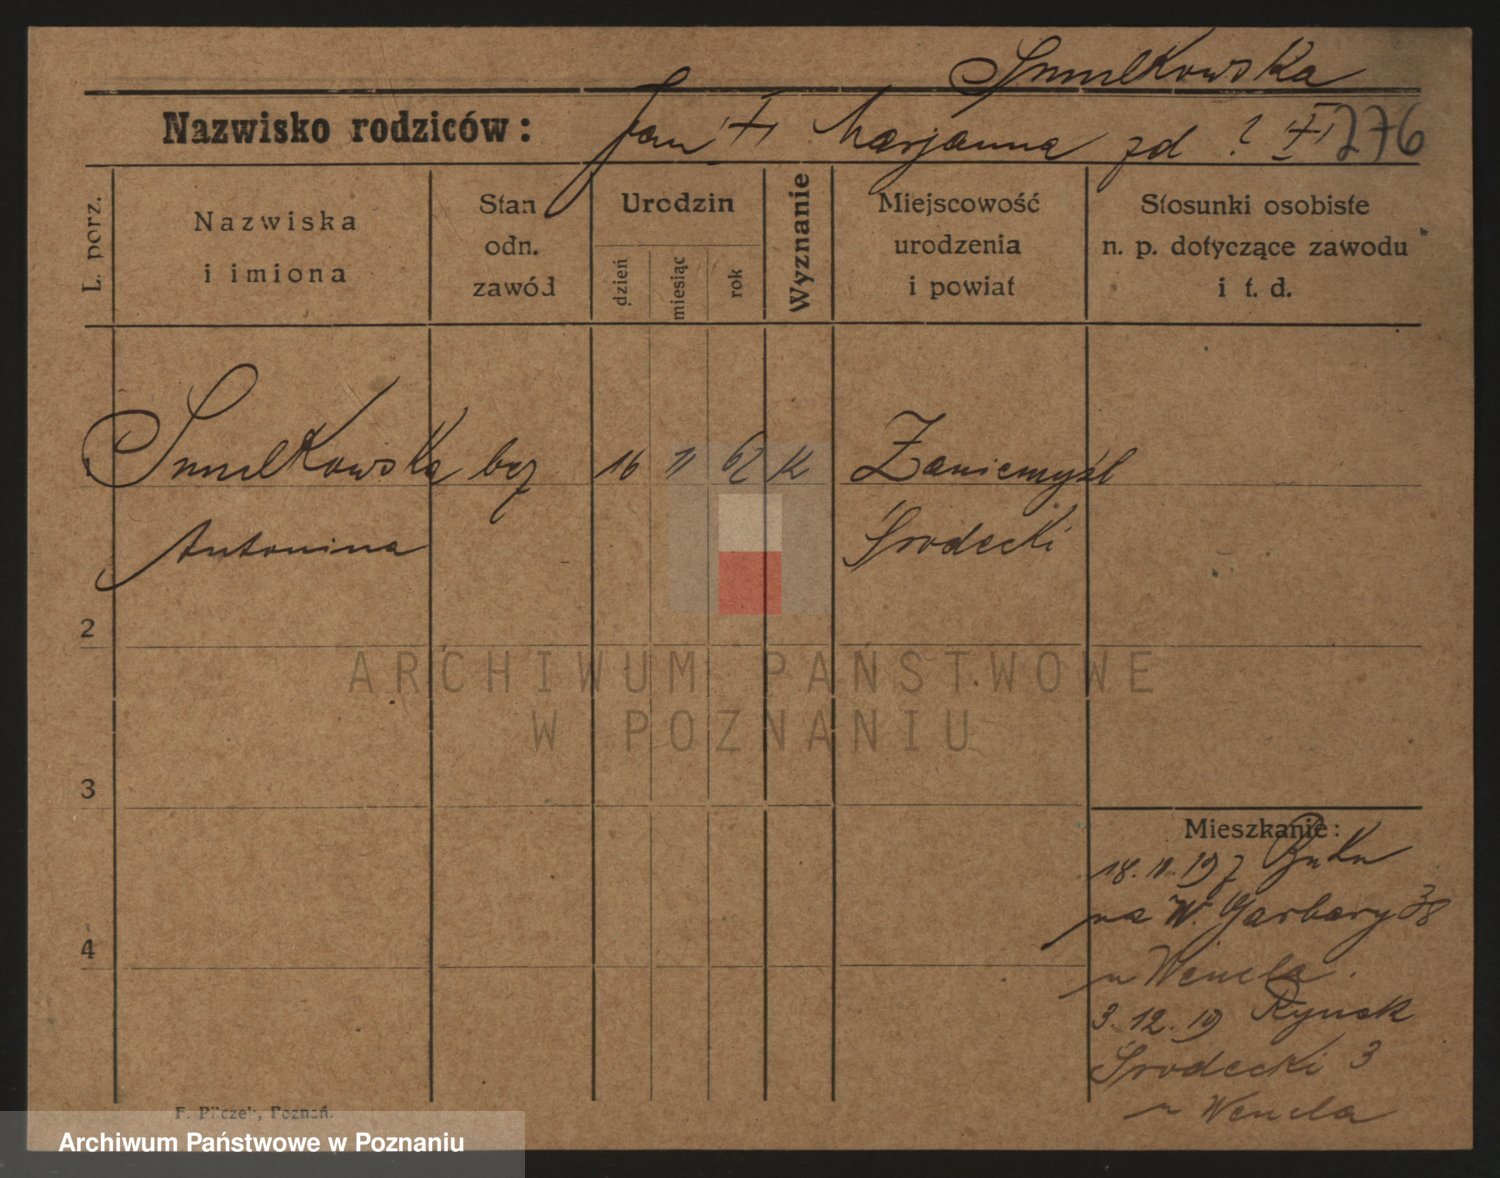 Smulkowska
Nazwisko rodziców: Jan Marjanna zd ? 276
L. porz.
Nazwiska
i imiona
Stan
odn.
zawód
Urodzin
dzień
miesiąc
rok
Wyznanie
Miejscowość
urodzenia
i powiat
Stosunki osobiste
n. p. dotyczące zawodu
i t. d.
1 Smulkowska bez 16 11 62 k Zaniemyśl
Antonina Środecki
2
ARCHIWUM PAŃSTWOWE
W POZNANIU
3
Mieszkanie:
18. 11. 19 z Buku
na W. Garbary 38
4
u Wencla.
3. 12. 19 Rynek
Środecki 3
u Wencla
F. Pilczek, Poznań.
Archiwum Państwowe w Poznaniu